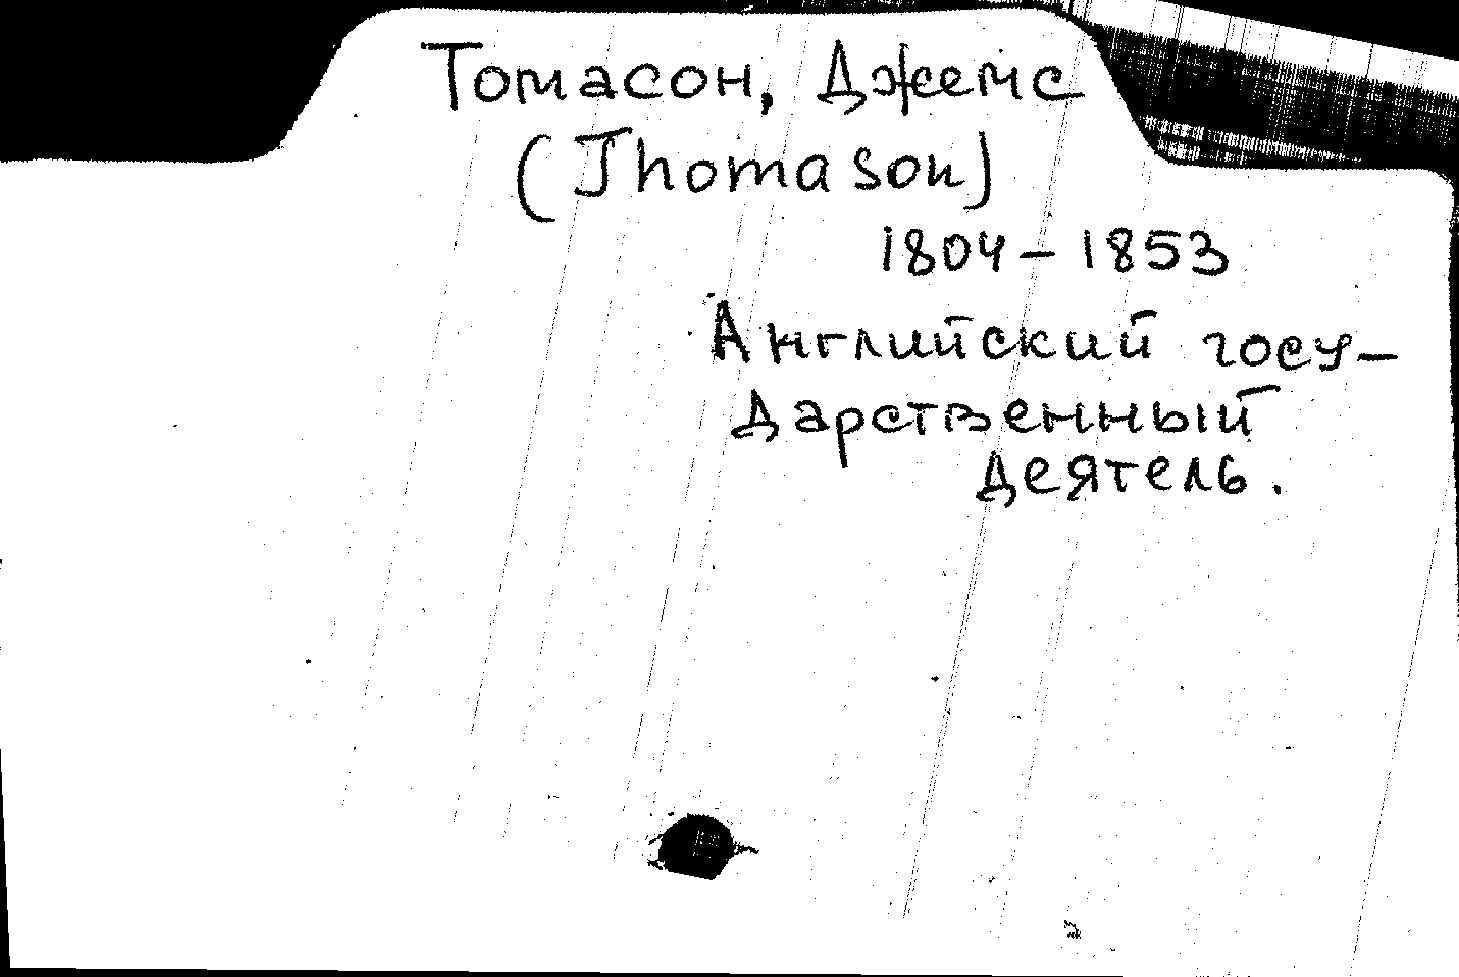 Томасон, Джемс
(Thomason)
1804-1853
Английский госу-
дарственный
деятель.